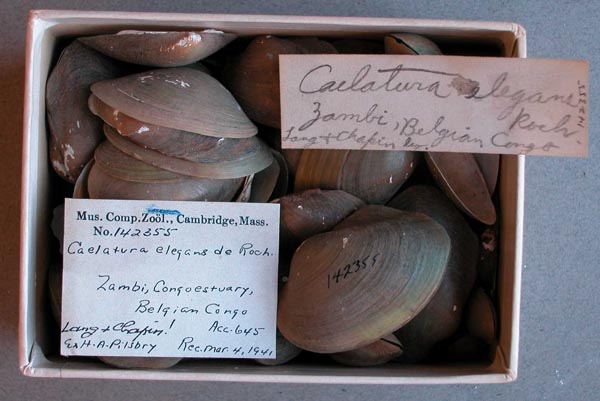 Caelatura elegans
Roch
Zambi, Belgian Congo
Lang & Chapin
142355
Mus. Comp. Zoöl., Cambridge, Mass.
No. 142355
Caelatura elegans de Roch.
Zambi, Congo estuary,
Belgian Congo
Lang & Chapin! Acc. 645
Ex H. A. Pilsbry Rec. Mar. 4, 1941
142355